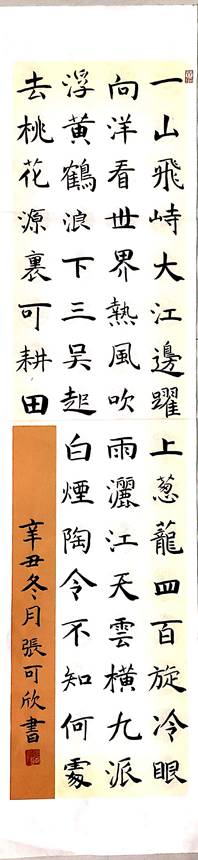 一山飛峙大江邊躍上葱蘢四百旋冷眼
向洋看世界熱風吹雨灑江天雲橫九派
浮黃鶴浪下三吳起白煙陶令不知何處
去桃花源裏可耕田
辛丑冬月張可欣書